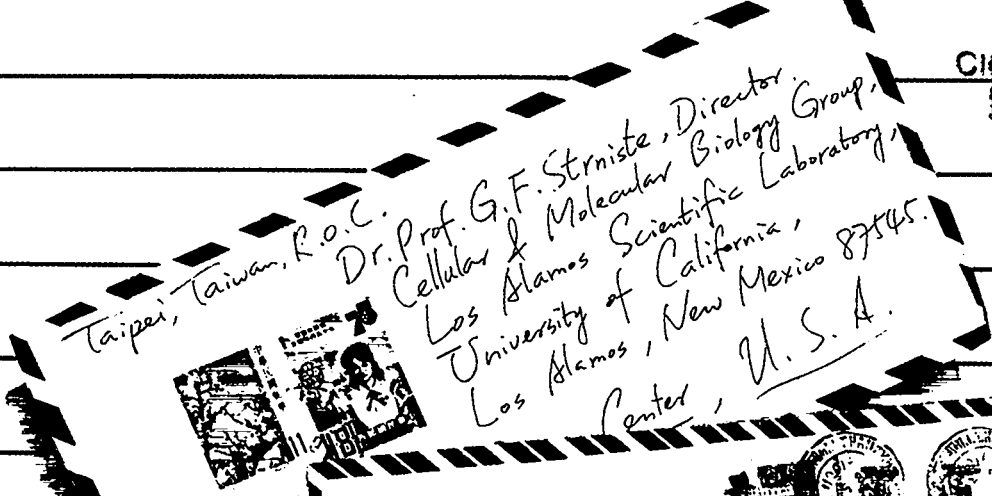 Taipei, Taiwan, R.O.C.
Dr. Prof. G. F. Strniste, Director.
Cellular & Molecular Biology Group,
Los Alamos Scientific Laboratory,
University of California,
Los Alamos, New Mexico 87545.
U. S. A.
Center,